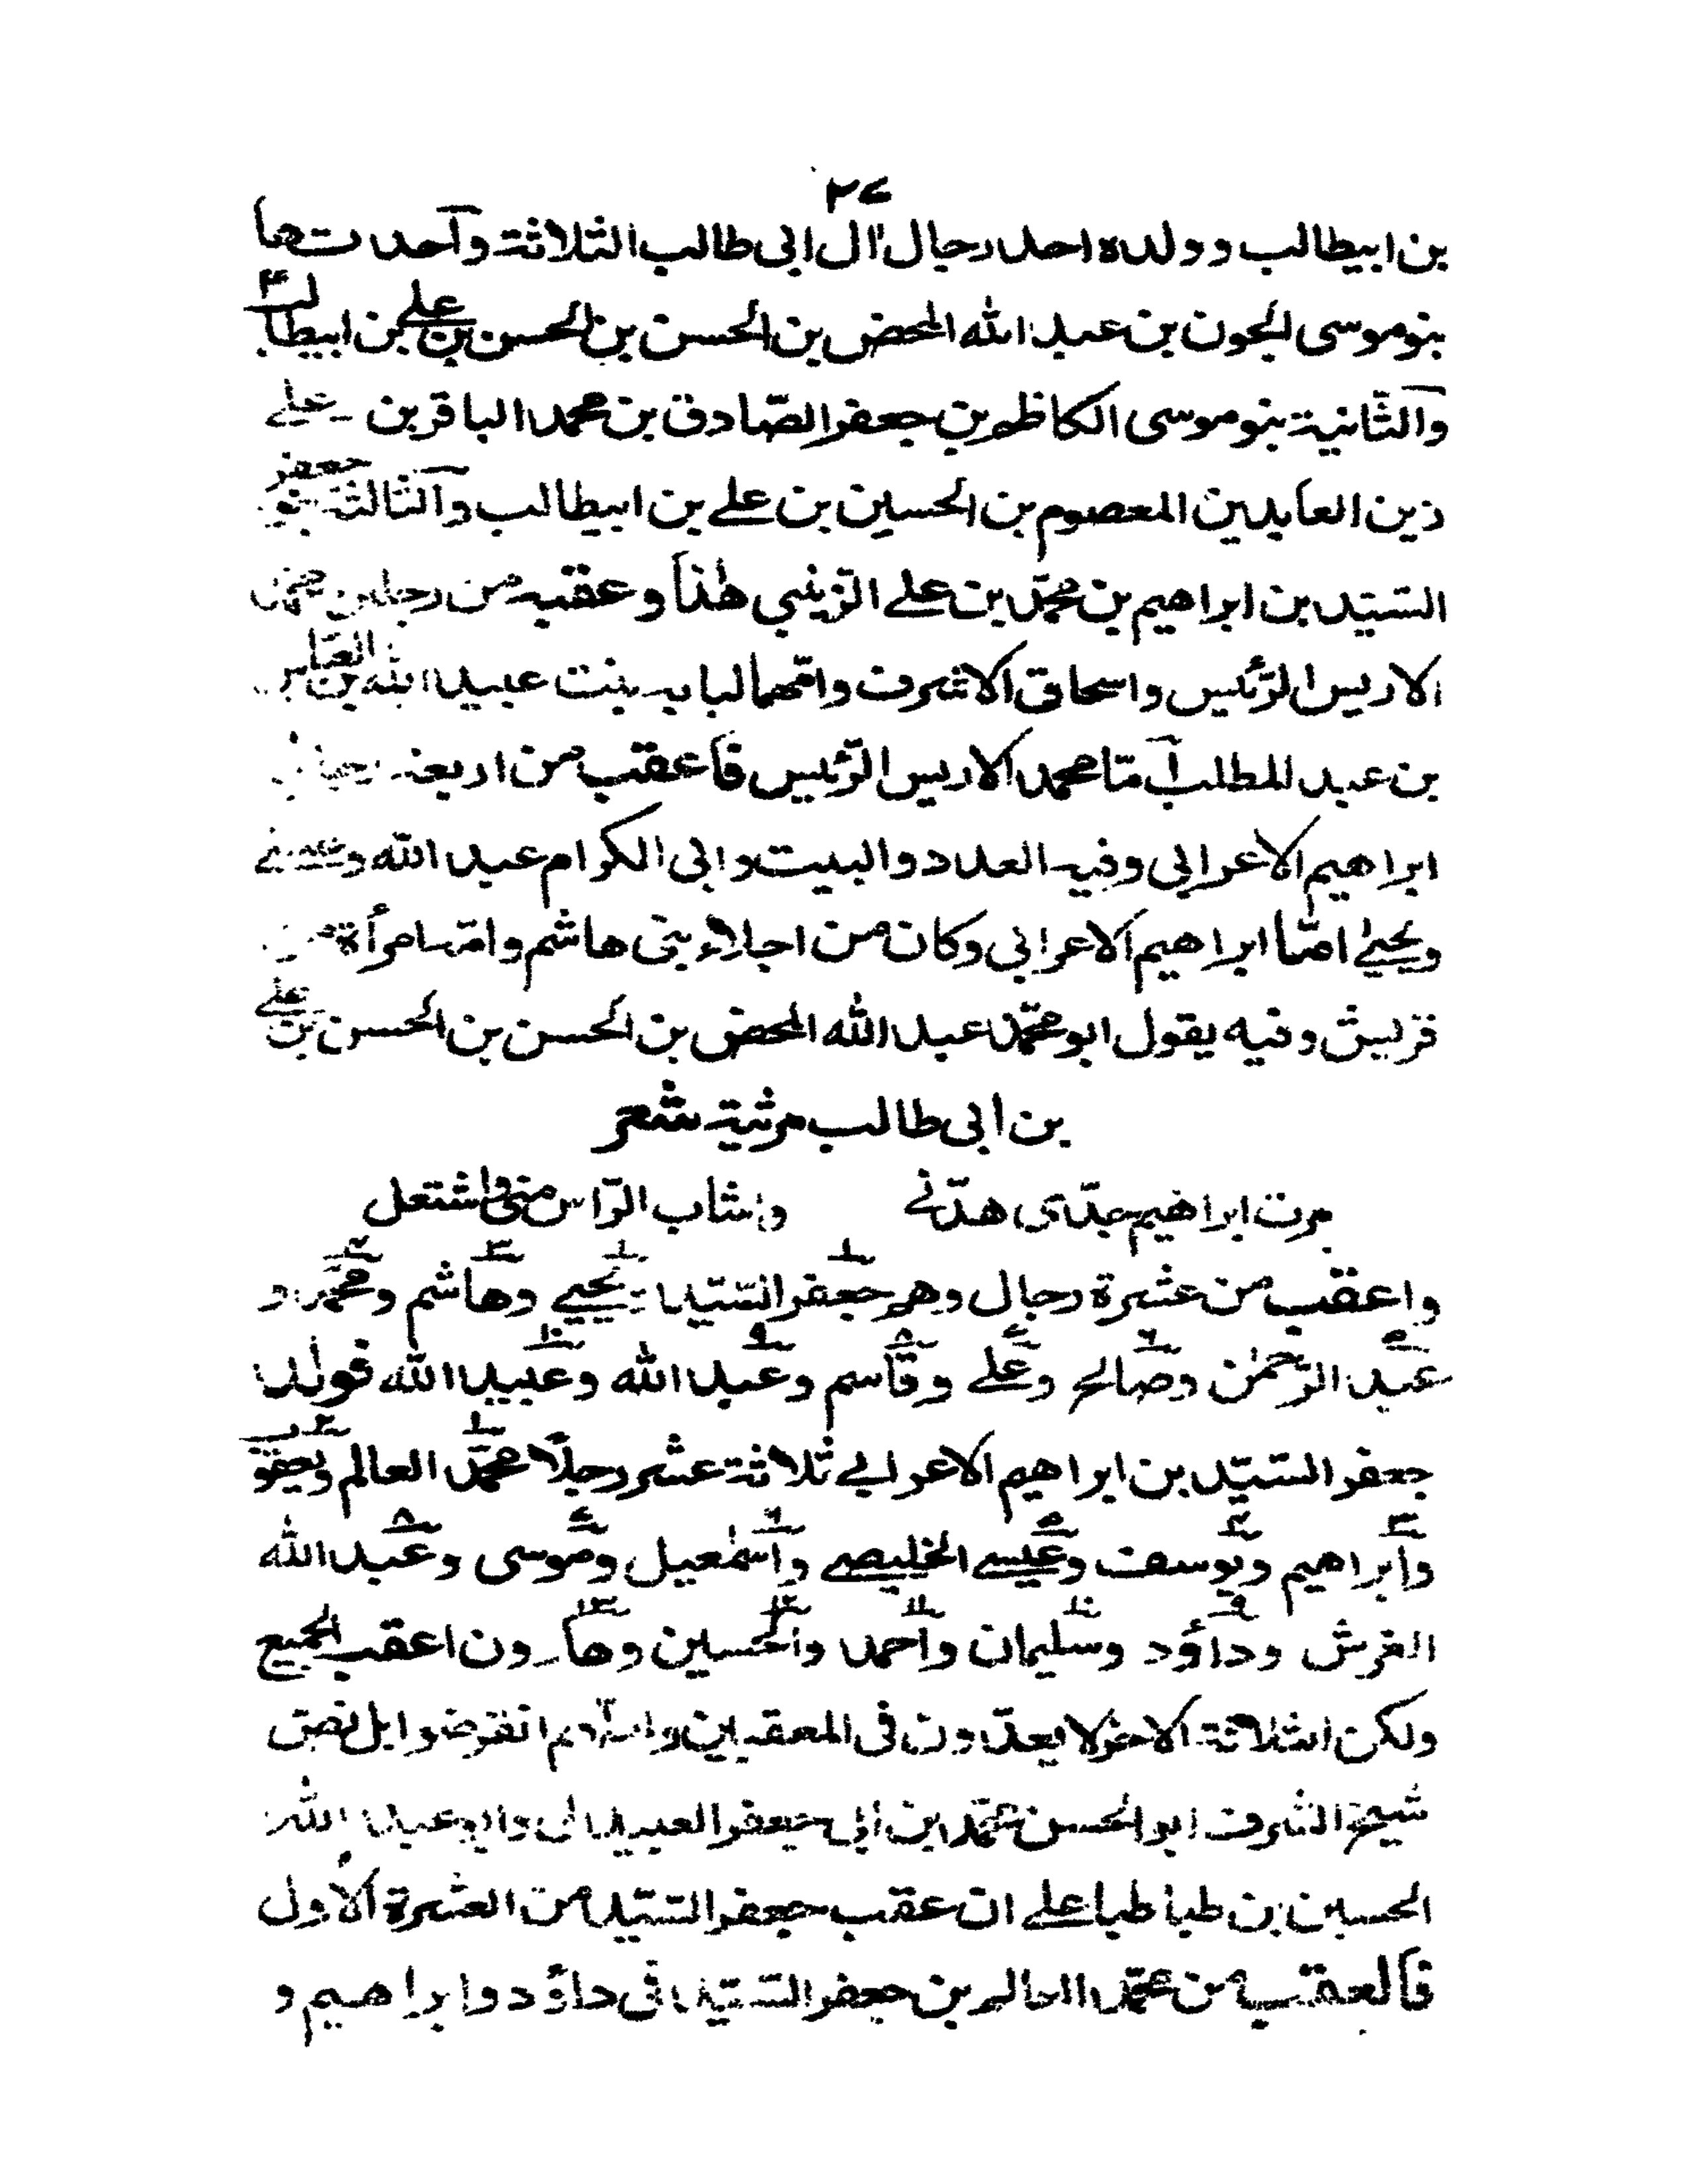 ٣٤
بن ابيطالب وولده احد رجال ال ابى طالب الثلاثة وآحدتها
بنو موسى الجون بن عبد الله المحض بن الحسن بن الحسن بن على بن ابيطالب
والثّانية بنو موسى الكاظم بن جعفر الصّادق بن محمد الباقر بن على
زين العابدين المعصوم بن الحسين بن على بن ابيطالب والثالثة بنو جعفر
السّيّد بن ابراهيم بن محمّد بن على الزّينبى هٰذا وعقبه من رجلين محمّد
الاريس الرّئيس واسحاق الاشرف وامّهما لبابه بنت عبيد الله بن العبّاس
بن عبد المطلب آمّا محمد الاريس الرّئيس فاعقب من اربعة رجال
ابراهيم الاعرابى وفيه العدد والبيت وابى الكرام عبد الله
ويحيىٰ امّا ابراهيم الاعرابى وكان من اجلاء بنى هاشم وامّه امرأة من
قريش وفيه يقول ابو محمّد عبد الله المحض بن الحسن بن الحسن بن على
بن ابى طالب مرثية شعر
ابراهيم هدّنى وشاب الرّاس منى واشتعل
واعقب من عشرة رجال وهم جعفر السّيّد ١ يحيى ٢ وهاشم ٣ ومحمّد ٤ و
عبد الرّحمٰن ٥ وصالح ٦ وعلى ٧ وقاسم ٨ وعبد الله ٩ وعبيد الله ١٠ فولد
جعفر السّيّد بن ابراهيم الاعرابى ثلاثة عشر رجلًا محمّد العالم ١ ويعقوب ٢
وابراهيم ٣ ويوسف ٤ وعيسى الخليصى ٥ واسمٰعيل ٦ وموسى ٧ وعبد الله ٨
الغرش وداؤد ٩ وسليمان ١٠ واحمد ١١ والحسين ١٢ وهارون ١٣ اعقب الجميع
ولكن الثلاثة الاخر لا يعدّون فى المعقبين انقرضوا بل نصّ
شيخ الشرف ابو الحسن محمّد بن ابى جعفر العبيدلى وابو عبد الله
الحسين بن طباطبا على ان عقب جعفر السّيّد من العشرة الاول
فالعقب من محمّد العالم بن جعفر السّيّد فى داؤد وابراهيم و